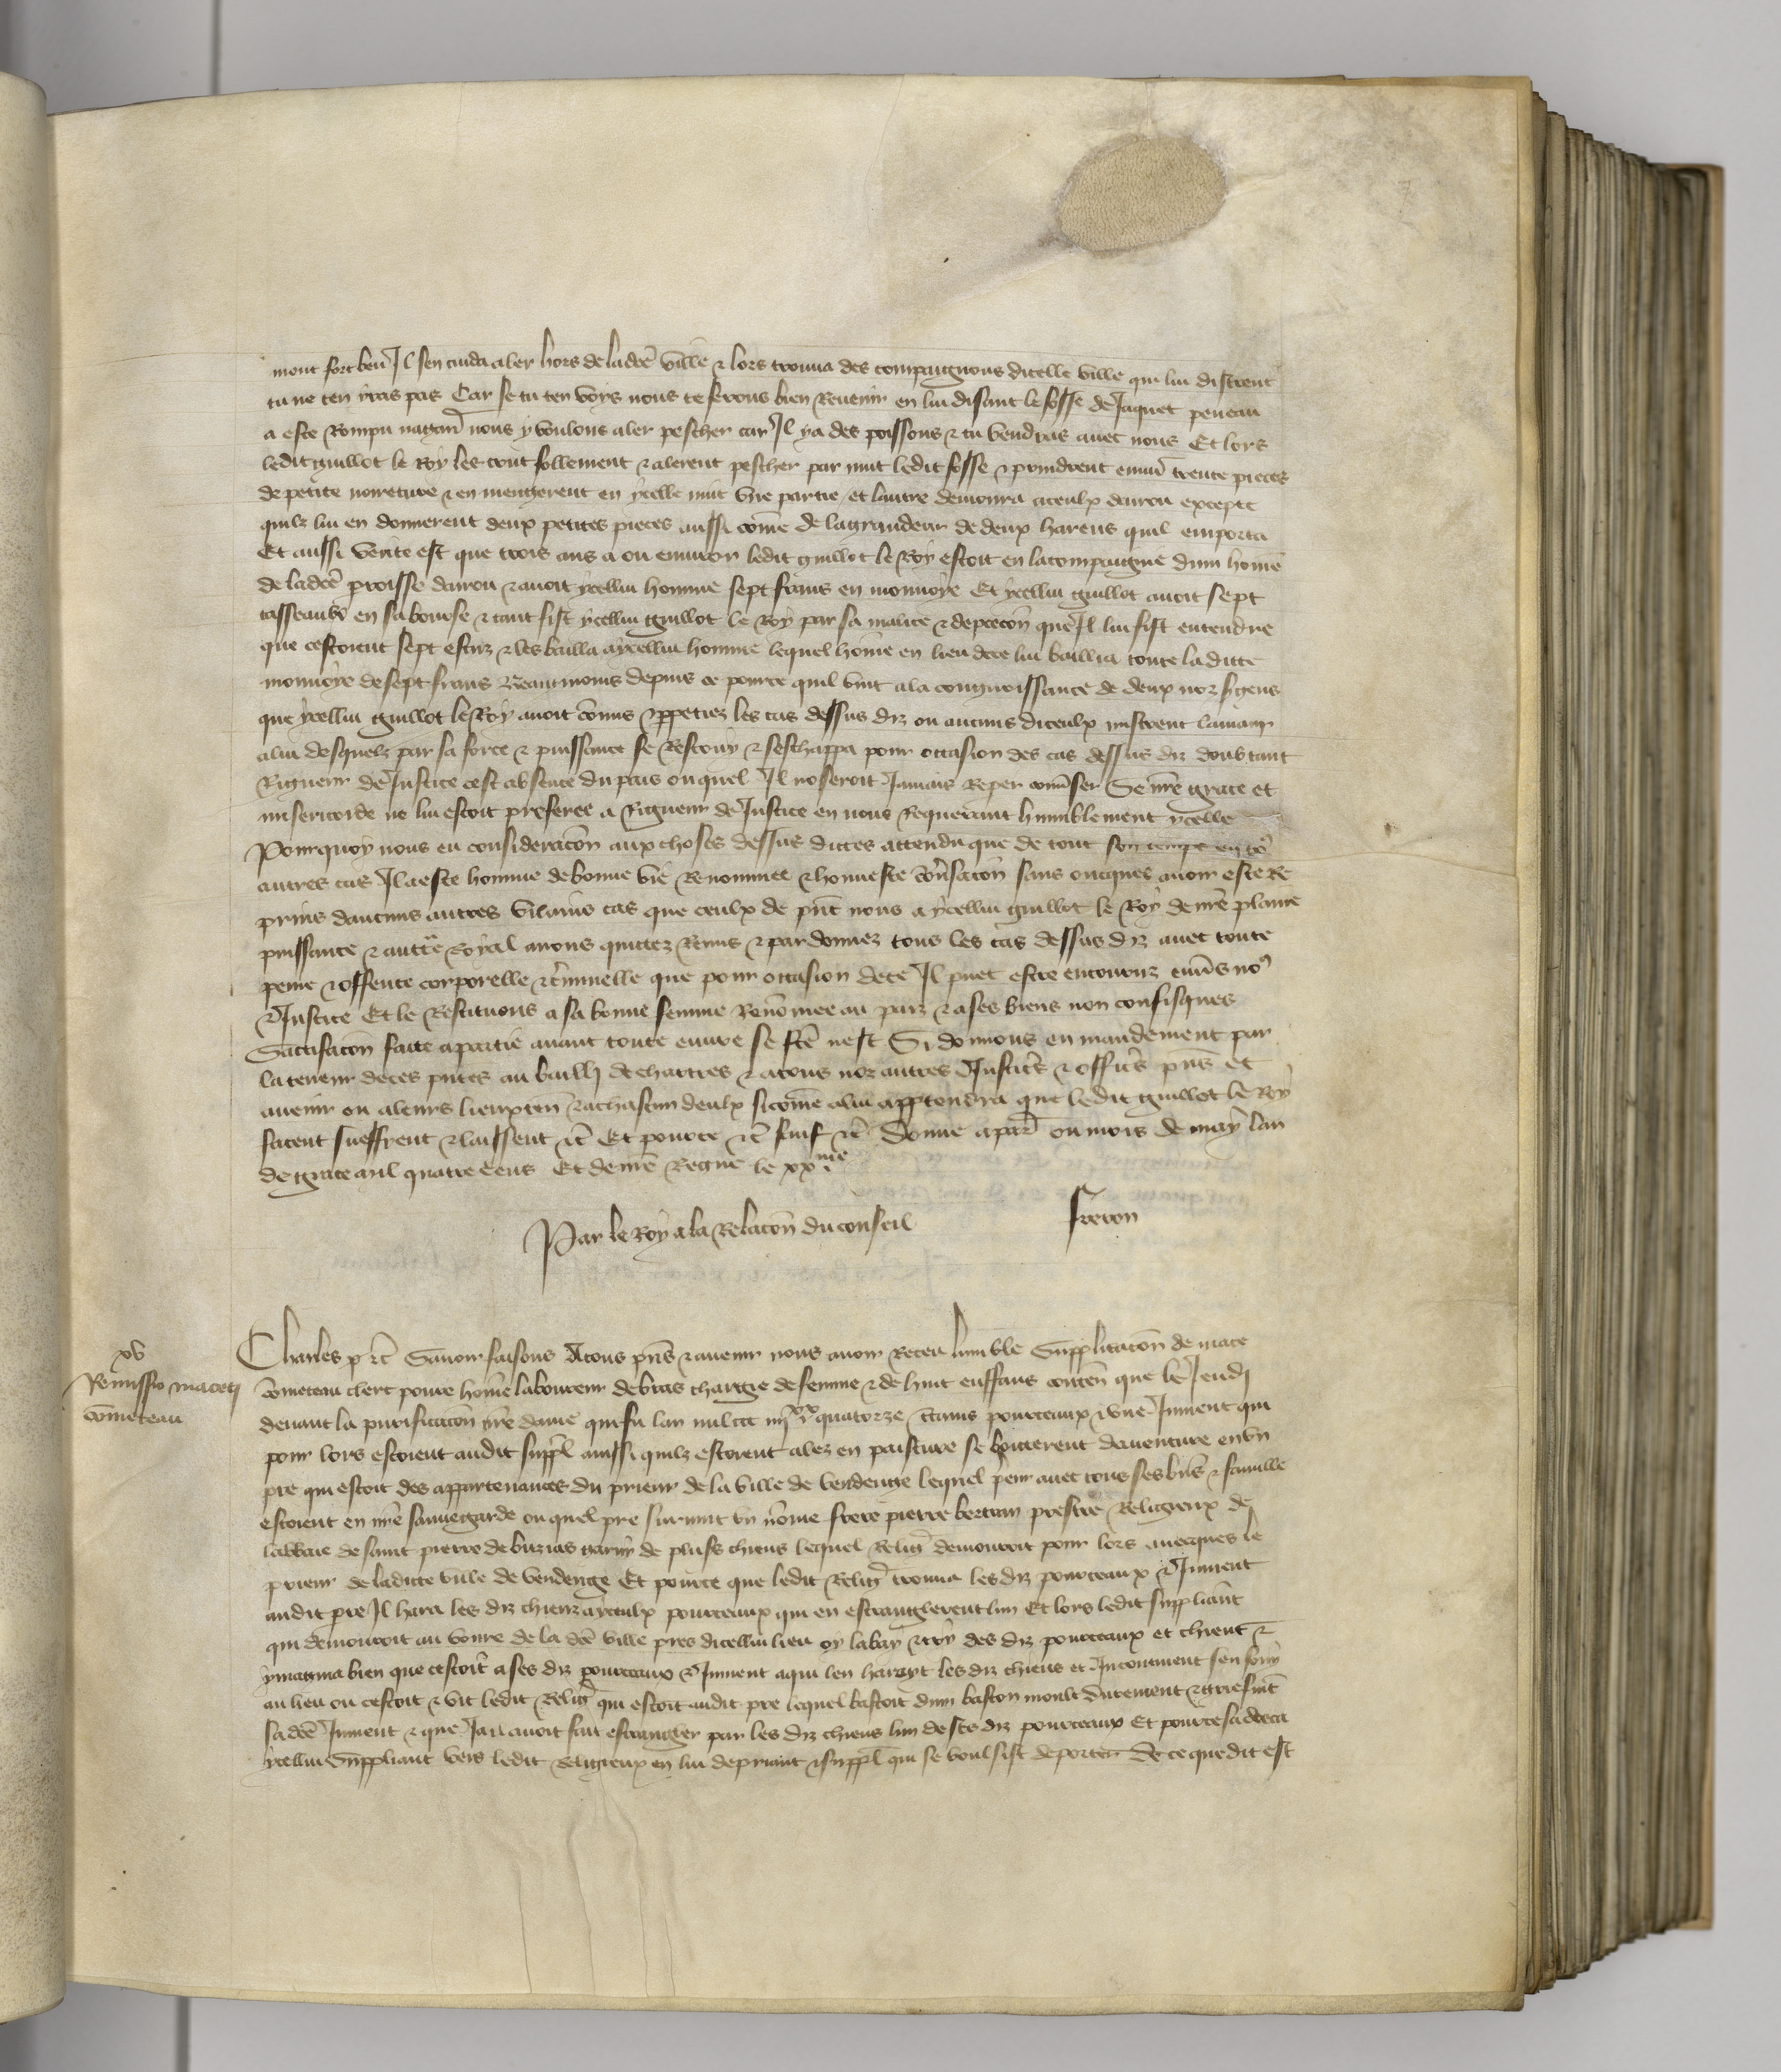 ment fort beu Il sen cuida aler hors de ladce ville & lors trouva des compaignons dicelle ville qui lui distrent
tu ne ten yras pas Car se tu ten voys nous te ferons bien Revenir en lui disant le fosse de Jaquet peneau
a este Rompu nagaire nous y voulons aler peschier car Il ya des poissons & tu vendras avec nous Et lors
ledit guillot le Roy les crut follement & alerent peschier par nuit ledit fosse & prindrent environ trente pieces
de petite noreture & en mengerent en ycelle nuit une partie et lautre demoura a ceulx dairou excepte
quilz lui en donnerent deux petites pieces aussi comme de la grandeur de deux harens quil emporta
Et aussi verite est que trois ans a ou environ ledit guillot le Roy estoit en lacompaignie dun homme
de ladce proisse dairou & avoit ycellui homme sept frans en monnoye Et ycellui guillot avoit sept
tasseaulx en sa bourse & tant fist ycellui guillot le Roy par sa malice & decepcon que Il lui fist entendre
que cestoient sept escuz & les bailla aycellui homme lequel homme en lieu de ce lui bailla toute ladicte
monnoye de sept frans Neantmoins depuis ce pource quil vint ala congnoissance de deux noz sergens
que ycellui guillot le Roy avoit commis & ppetrez les cas dessus diz ou aucuns diceulx mistrent lamain
alui desquelz par sa force & puissance se Rescouy & seschappa pour occasion des cas dessus diz doubtant
Rigueur de Justice cest absente du pais ouquel Il noseroit Jamais Reper converser Se nre grace et
misericorde ne lui estoit preferee a Rigueur de Justice en nous Requerant humblement ycelle
Pourquoy nous eu consideracon aux choses dessus dictes attendu que de tout son temps en tous
autres cas Il a este homme de bonne vie Renommee & honneste conversacon sans oncques avoir este Re
prins daucuns autres vilains cas que ceulx de pnt nous a ycellui guillot le Roy de nre plaine
puissance & auctte Royal avons quittez Remis & pardonnez tous les cas dessus diz avec toute
peine & offense corporelle & criminelle que pour occasion dece Il puet estre encouruz envers nous
& Justice Et le Restituons a sa bonne femme Renommee au paiz & a ses biens non confisques
Satisfacon faicte a partie avant toute euvre se fte nest Si donnons en mandement par
la teneur de ces pntes au bailli de chartres & a tous noz autres Justicers & officers pns et
avenir ou aleurs lieuxten & achascun deulx sicomme alui apptendra que ledit guillot le Roy
facent sueffrent & laissent etc Et pource etc sauf etc Donne a paris ou mois de may lan
de grace mil quatre cens Et de nre Regne le xxme
Par le Roy ala Relacon du conseil freron
xv
Remissio maceti
cometeau
Charles p etc Savoir faisons A tous pns & avenir nous avoir Receu lumble Supplicacon de mace
cometeau clerc povre homme laboureur de bras chargie de femme & de huit enffans conten que le Jeudi
devant la purificacon nre dame qui fu lan mil ccc iiijxx & quatorze Certains pourceaux & une Jument qui
pour lors estoient audit suppl ainssi quilz estoient alez en pasture se bouterent daventure en un
pre qui estoit des appartenances du prieur de la ville de vendenge lequel prieur avec tous ses biens & famille
estoient en nre sauvegarde ouquel pre survint un nomme frere pierre bertran prestre Religieux de
labbaie de saint pierre de burias garny de pluss chiens lequel Relig demouroit pour lors avecques le
prieur de ladicte ville de vendenge Et pource que ledit Relig trouva les diz pourceaux & Jument
audit pre Il hara les diz chiens ayceulx pourceaux qui en estranglerent lun Et lors ledit suppliant
qui demouroit au bourc de la dce ville pres dicellui lieu oy labay & cry des diz pourceaux et chiens &
ymagina bien que cestoit a ses diz pourceaux & Jument a qui len harayt les diz chiens et Incontinent sen fouy
au lieu ou cestoit & vit ledit Relig qui estoit audit pre lequel bastoit dun baston moult durement & griefment
sadce Jument & que Ja il avoit fait estrangler par les diz chiens lun de ses diz pourceaux Et pource sadreca
ycellui Suppliant vers ledit Religieux en lui depriant & suppl qui se voulsist deporter de ce que dit est